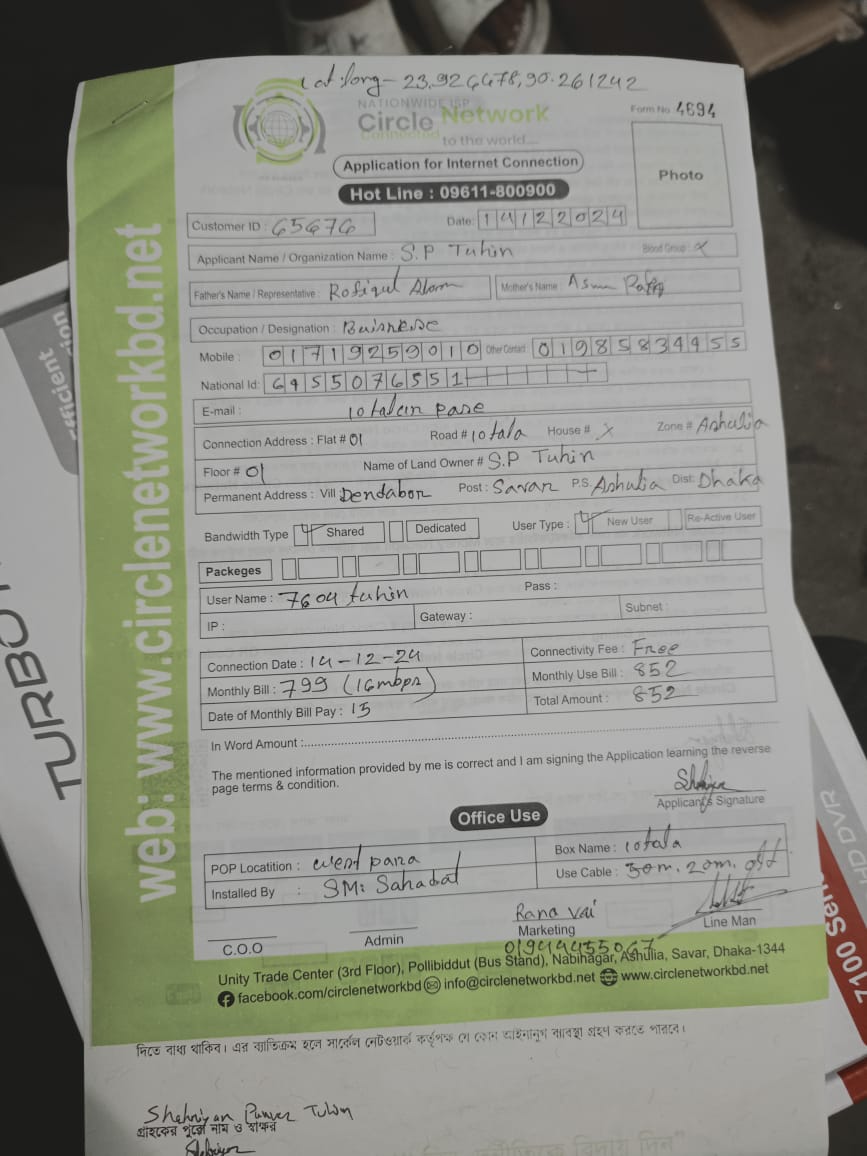 Lat:long- 23.926478,90.261242
NATIONWIDE ISP
Circle Network
Connected to the world....
Form No. 4694
Application for Internet Connection
Photo
Hot Line : 09611-800900
Customer ID : 65676
Date: 14122024
Applicant Name / Organization Name : S.P Tuhin Blood Group : X
Father's Name / Representative : Rofiqul Alom Mother's Name : Asma
Occupation / Designation : Buisnesse
Mobile : 01719259010 Other Contact : 01985834455
National Id: 6455076551
E-mail :
10 talar pase
Connection Address : Flat # 01 Road # 10 tala House # X Zone # Ashulia
Floor # 01 Name of Land Owner # S.P Tuhin
Permanent Address : Vill Dendabor Post : Savar P.S. Ashulia Dist: Dhaka
Bandwidth Type Shared Dedicated User Type : New User Re-Active User
Packeges
User Name : 7604 tuhin Pass :
IP : Gateway : Subnet :
Connection Date : 14-12-24 Connectivity Fee : Free
Monthly Bill : 799 (16mbps) Monthly Use Bill : 852
Date of Monthly Bill Pay : 15 Total Amount : 852
In Word Amount :
The mentioned information provided by me is correct and I am signing the Application learning the reverse
page terms & condition.
Applicant's Signature
Office Use
POP Locatition : west para Box Name : 10tala
Installed By : SM: Sahadat Use Cable : 30m. 20m.
Rana vai
C.O.O Admin Marketing Line Man
01944455067
Unity Trade Center (3rd Floor), Pollibiddut (Bus Stand), Nabinagar, Ashulia, Savar, Dhaka-1344
facebook.com/circlenetworkbd info@circlenetworkbd.net www.circlenetworkbd.net
web: www.circlenetworkbd.net
দিতে বাধ্য থাকিব। এর ব্যতিক্রম হলে সার্কেল নেটওয়ার্ক কর্তৃপক্ষ যে কোন আইনানুগ ব্যবস্থা গ্রহণ করতে পারবে।
Shahriyar Tuhin
গ্রাহকের পুরো নাম ও স্বাক্ষর
TURBO
efficient
HD DVR
7100